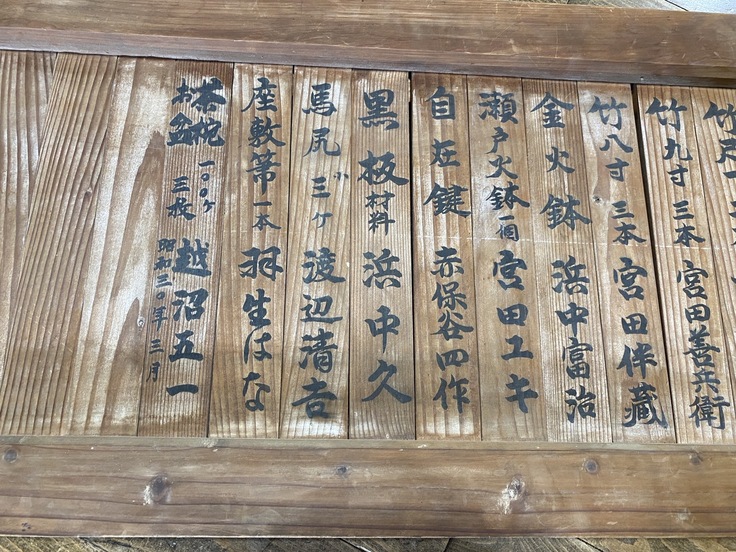 竹尺一
竹九寸 三本 宮田善兵衛
竹八寸 三本 宮田伴藏
金火鉢 浜中富治
瀬戸火鉢一個 宮田ユキ
自在鍵 赤保谷四作
黒板材料 浜中久
馬尻 小三ケ 渡辺清吉
座敷箒一本 羽生はな
木杯 一〇〇ケ
お盆 三枚 越沼五一
昭和三〇年三月